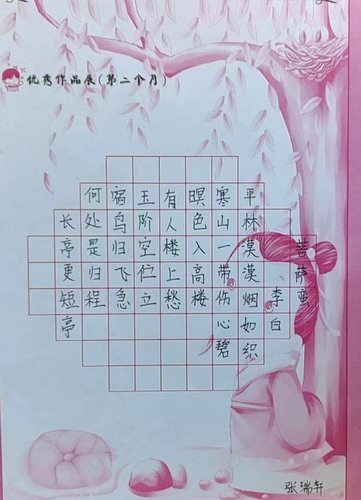 优秀作品展(第二个月)
菩萨蛮
李白
平林漠漠烟如织
寒山一带伤心碧
暝色入高楼
有人楼上愁
玉阶空伫立
宿鸟归飞急
何处是归程
长亭更短亭
张瑞轩